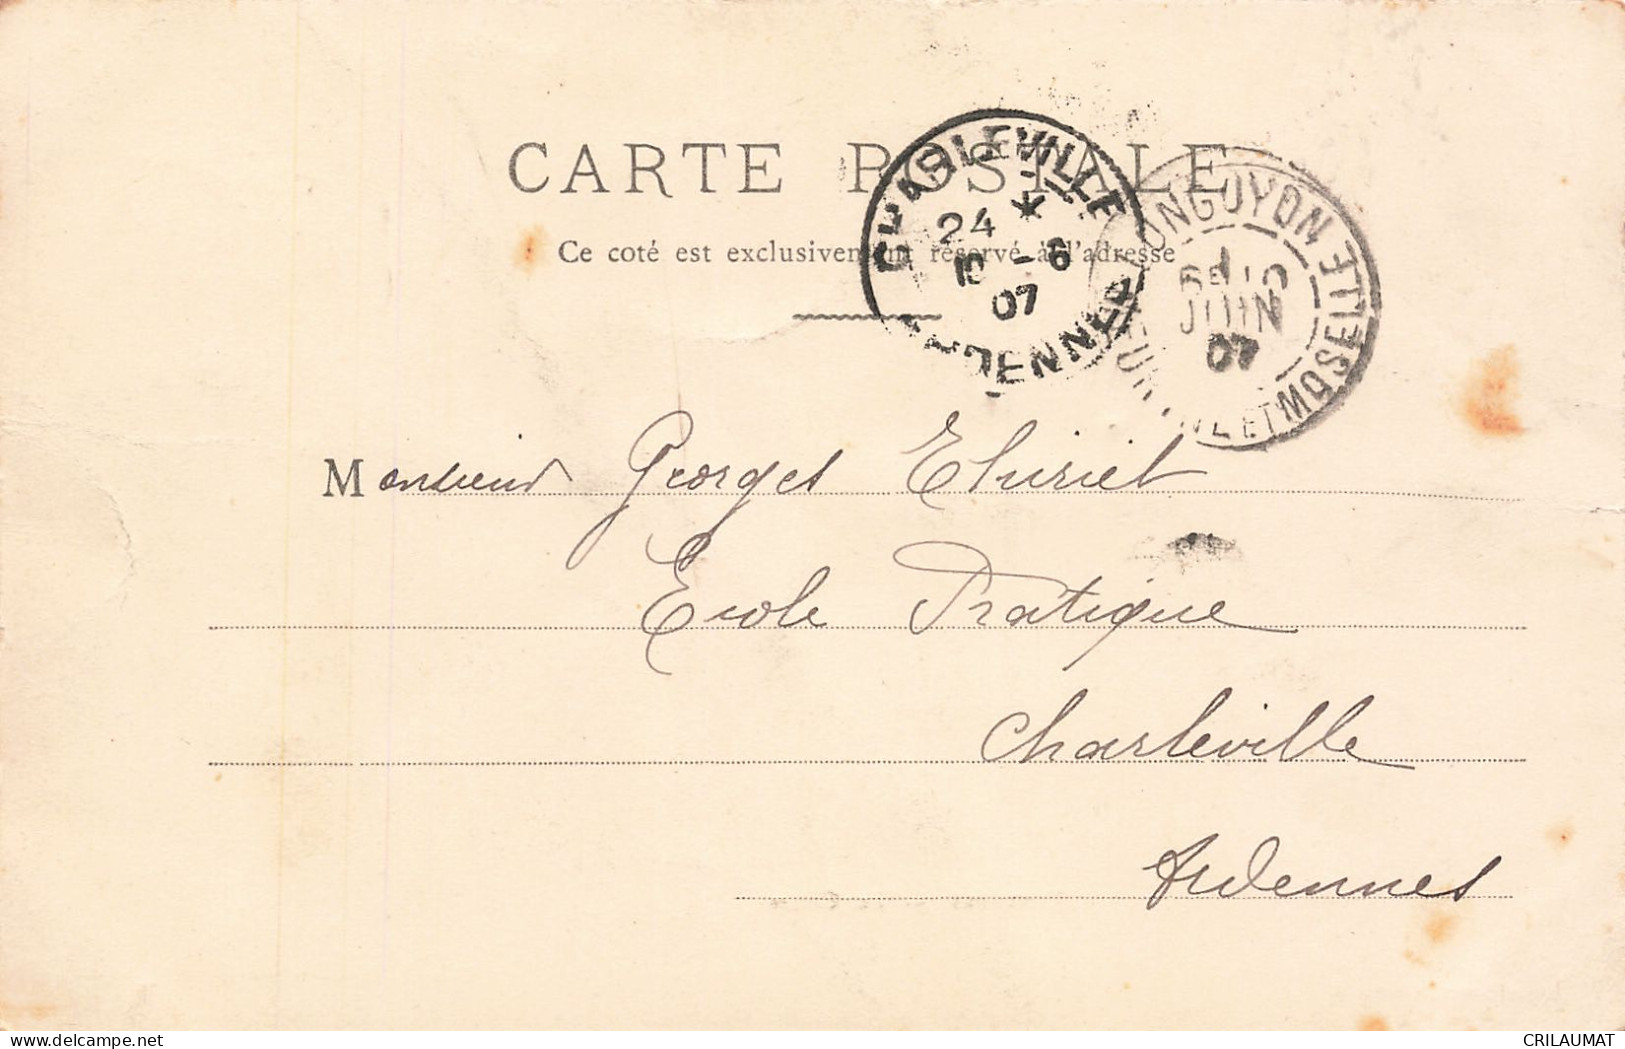 CARTE POSTALE
Ce coté est exclusivement réservé à l'adresse
CHARLEVILLE
24 *
10 - 6
07
ARDENNES
LONGUYON
JUIN
07
MEURTHE ET MOSELLE
Monsieur Georges Thiriet
Ecole Pratique
Charleville
Ardennes
delcampe.net
CRILAUMAT